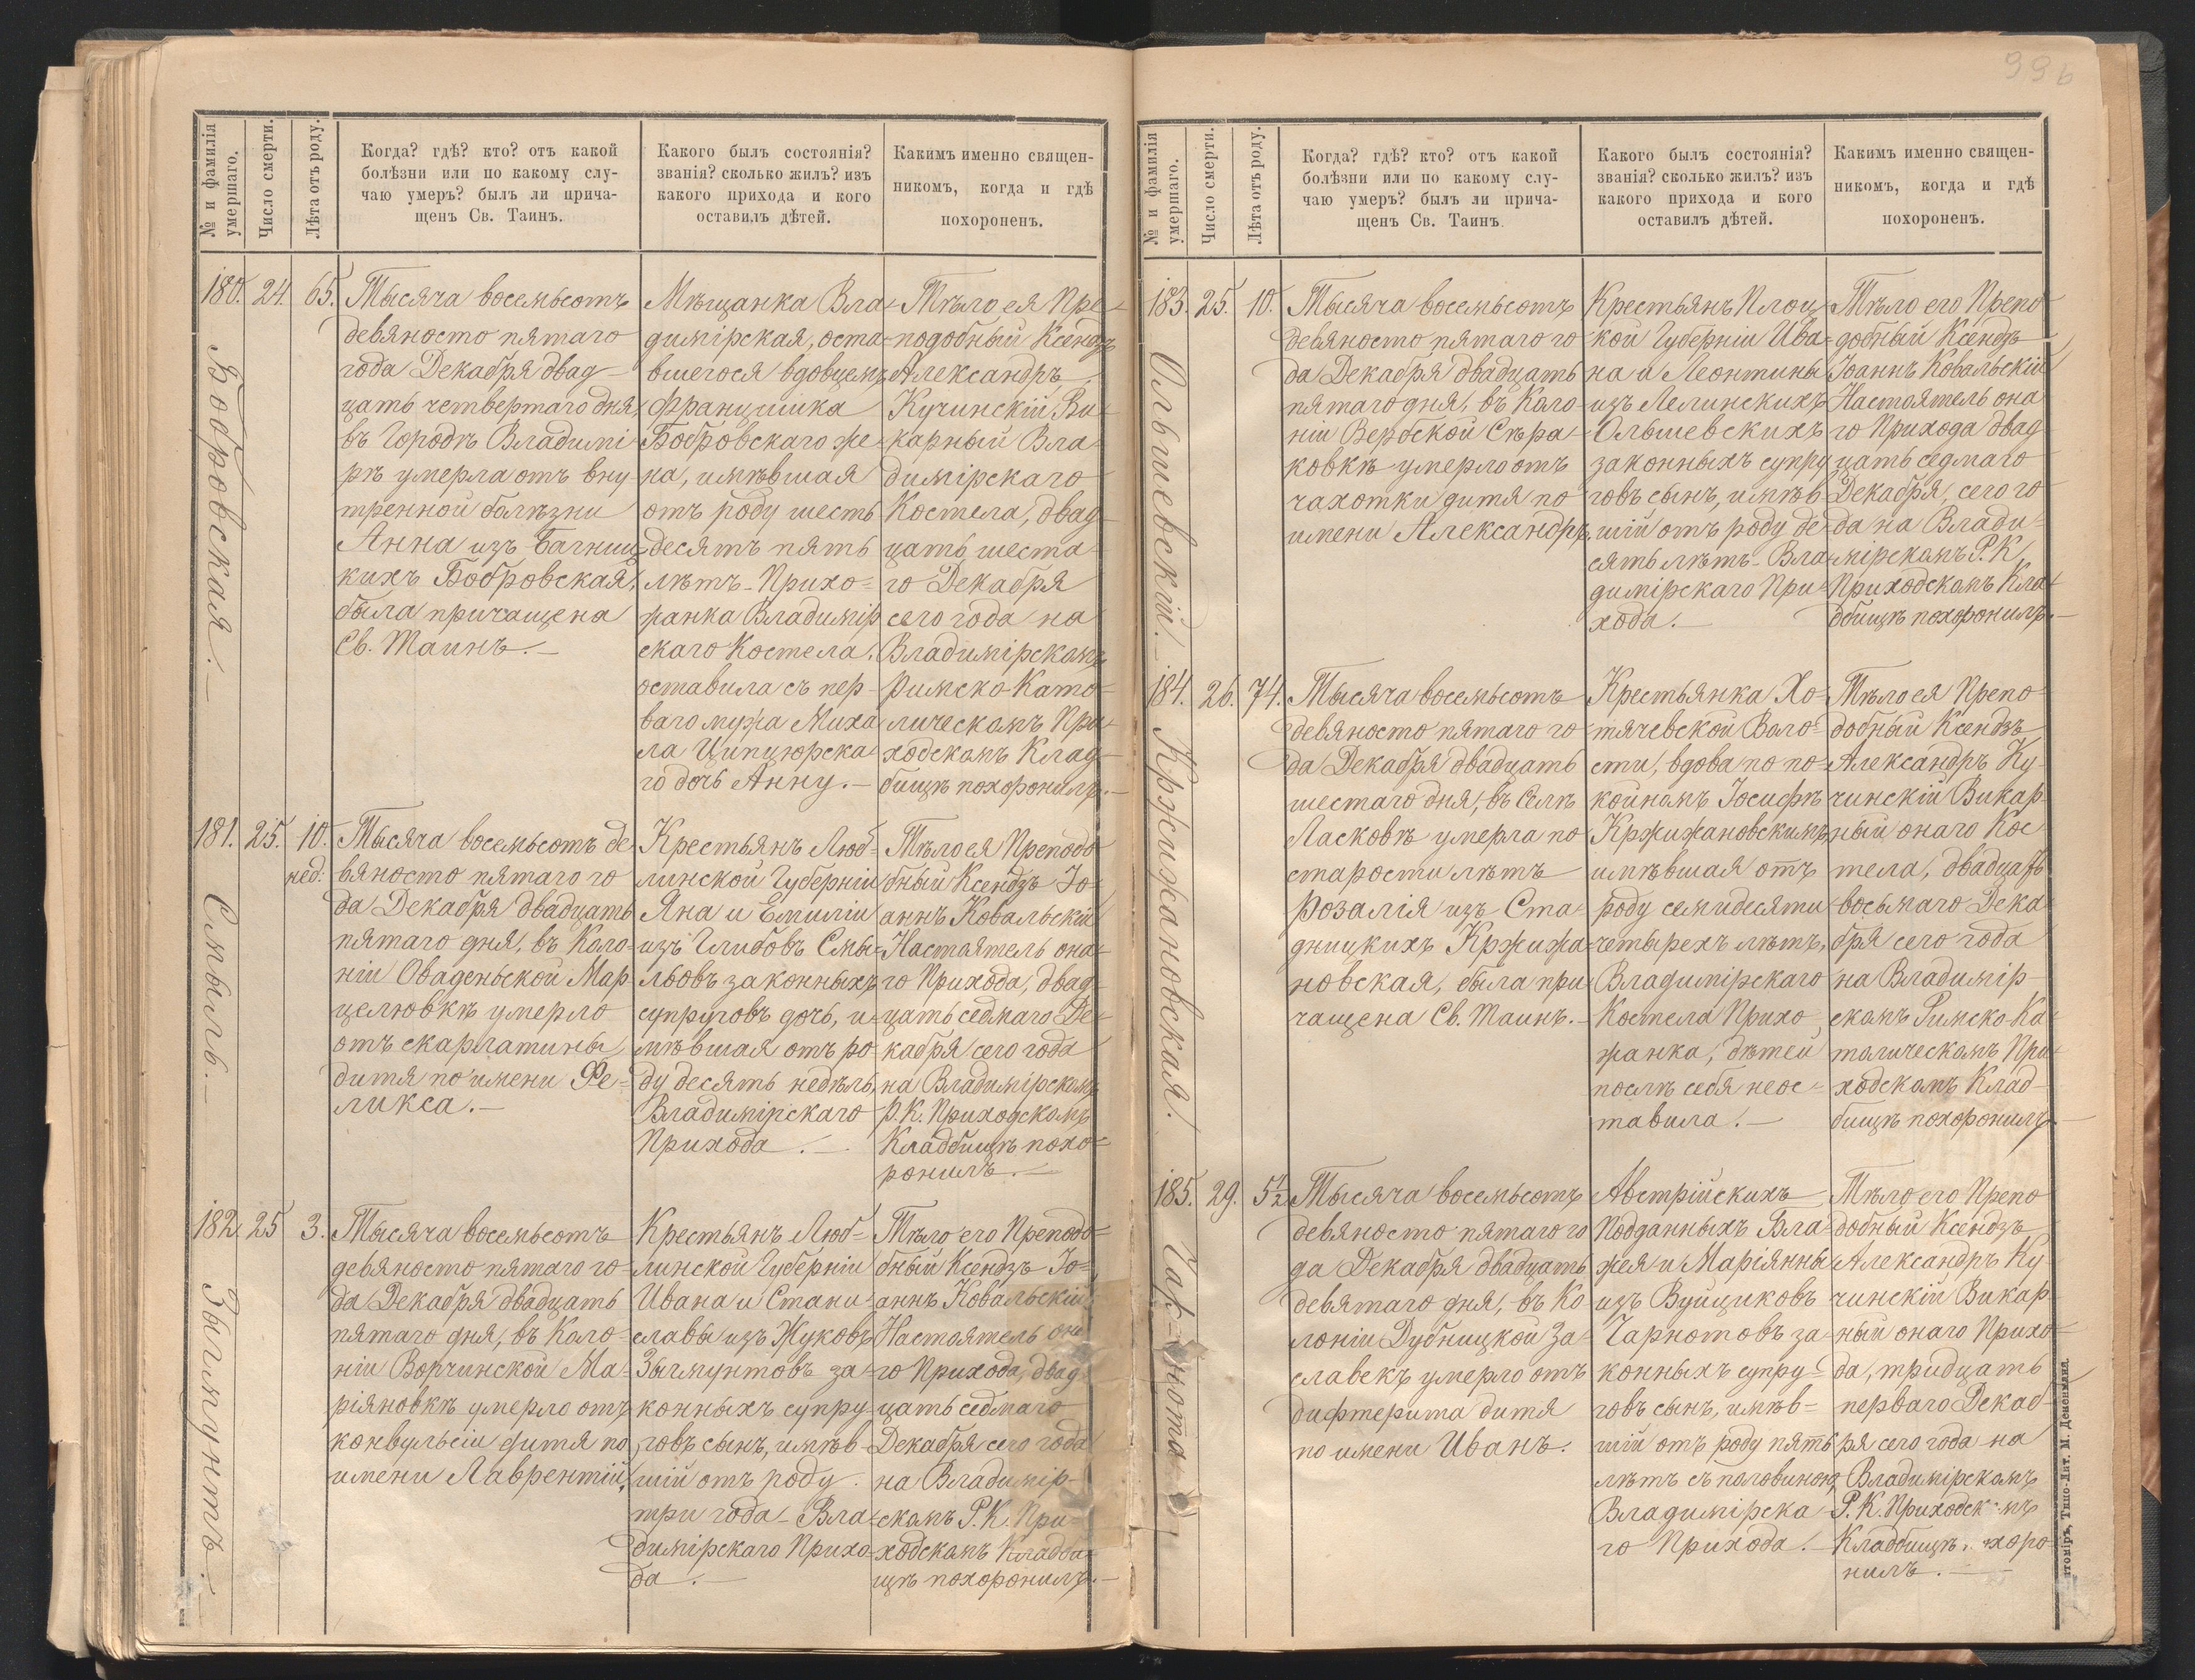 99 b
№ и фамилія умершаго.
Число смерти.
Лѣта отъ роду.
Когда? гдѣ? кто? отъ какой
болѣзни или по какому слу-
чаю умеръ? былъ ли прича-
щенъ Св. Таинъ.
Какого былъ состоянія?
званія? сколько жилъ? изъ
какого прихода и кого
оставилъ дѣтей.
Какимъ именно священ-
никомъ, когда и гдѣ
похороненъ.
180.
Бобровская.
24.
65.
Тысяча восемьсотъ
девяносто пятаго
года Декабря двад
цать четвертаго дня
въ Городѣ Владимі
рѣ умерла отъ вну
тренной болѣзни
Анна изъ Багниц
кихъ Бобровская,
была причащена
Св. Таинъ.
Мѣщанка Вла
димірская, оста
вшегося вдовцемъ
Францишка
Бобровскаго же
на, имѣвшая
отъ роду шесть
десятъ пять
лѣтъ - Прихо=
жанка Владимір
скаго Костела,
оставила съ пер
ваго мужа Миха
ла Ципцюрска
го дочь Анну.
Тѣло ея Пре
подобный Ксендзъ
Александръ
Кучинскій Ви
карный Вла
димірскаго
Костела, двад
цать шеста
го Декабря
сего года на
Владимірскомъ
Римско-Като=
лическомъ При
ходскомъ Клад
бищѣ похоронилъ.
181.
Смыль.
25.
10.
нед.
Тысяча восемьсотъ де
вяносто пятаго го
да Декабря двадцать
пятаго дня, въ Коло
ніи Оваденьской Мар
целювкѣ умерло
отъ скарлатины
дитя по имени Фе=
ликса.
Крестьянъ Люб=
линской Губерніи
Яна и Емиліи
изъ Глибовъ Смы=
льовъ законныхъ
супруговъ дочь, и
мѣвшая отъ ро
ду десять недѣль,
Владимірскаго
Прихода.
Тѣло ея Преподо
бный Ксендзъ Іо=
аннъ Ковальскій
Настоятель она
го Прихода, двад
цать седмаго Де
кабря сего года
на Владимірскомъ
Р.К. Приходскомъ
Кладбищѣ похо=
ронилъ.
182.
Зыгмунтъ.
25
3.
Тысяча восемьсотъ
девяносто пятаго го=
да Декабря двадцать
пятаго дня, въ Коло=
ніи Ворчинской Ма=
ріяновкѣ умерло отъ
конвульсіи дитя по
имени Лаврентій,
Крестьянъ Люб=
линской Губерніи
Ивана и Стани=
славы изъ Жуковъ
Зыгмунтовъ за=
конныхъ супру=
говъ сынъ, имѣв=
шій отъ роду
три года - Вла=
димірскаго Прихо=
да.
Тѣло его Преподо=
бный Ксендзъ Іо=
аннъ Ковальскій
Настоятель она
го Прихода, двад
цать седмаго
Декабря сего года
на Владимір-
скомъ Р.К. При=
ходскомъ Кладби
щѣ похоронилъ.
№ и фамилія умершаго.
Число смерти.
Лѣта отъ роду.
Когда? гдѣ? кто? отъ какой
болѣзни или по какому слу-
чаю умеръ? былъ ли прича-
щенъ Св. Таинъ.
Какого былъ состоянія?
званія? сколько жилъ? изъ
какого прихода и кого
оставилъ дѣтей.
Какимъ именно священ-
никомъ, когда и гдѣ
похороненъ.
183.
Ольшевскій.
25.
10.
Тысяча восемьсотъ
девяносто пятаго го
да Декабря двадцать
пятаго дня, въ Коло=
ніи Вербской Сѣра=
ковкѣ умерло отъ
чахотки дитя по
имени Александръ,
Крестьянъ Плоц
кой Губерніи Ива=
на и Леонтины
изъ Лелинскихъ
Ольшевскихъ
законныхъ супру
говъ сынъ, имѣв
шій отъ роду де
сять лѣтъ - Вла
димірскаго При=
хода.
Тѣло его Препо
добный Ксендзъ
Іоаннъ Ковальскій
Настоятель она
го Прихода двад
цать седмаго
Декабря, сего го
да на Влади=
мірскомъ Р.К.
Приходскомъ Кла
дбищѣ похоронилъ.
184.
Кржижановская.
26.
74.
Тысяча восемьсотъ
девяносто пятаго го
да Декабря двадцать
шестаго дня, въ Селѣ
Ласковѣ умерла по
старости лѣтъ
Розалія изъ Ста=
дницкихъ Кржижа=
новская, была при
чащена Св. Таинъ.
Крестьянка Хо=
тячевской Воло=
сти, вдова по по=
койномъ Іосифѣ
Кржижановскимъ,
имѣвшая отъ
роду семидесяти
четырехъ лѣтъ,
Владимірскаго
Костела Прихо
жанка, дѣтей
послѣ себя неос=
тавила.
Тѣло ея Препо=
добный Ксендзъ
Александръ Ку=
чинскій Викар
ный онаго Кос
тела, двадцать
восьмаго Дека
бря сего года
на Владимір
скомъ Римско-Ка
толическомъ При
ходскомъ Клад
бищѣ похоронилъ
185.
29.
5½
Тысяча восемьсотъ
девяносто пятаго го
да Декабря двадцать
девятаго дня, въ Ко
лоніи Дубницкой За=
славекъ умерло отъ
дифтерита дитя
по имени Иванъ.
Австрійскихъ
Подданныхъ Вла=
жея и Маріянны
изъ Вуйциковъ
Чарнотовъ за=
конныхъ супру=
говъ сынъ, имѣв=
шій отъ роду пять
лѣтъ съ половиною,
Владимірска=
го Прихода.
Тѣло его Препо
добный Ксендзъ
Александръ Ку
чинскій Викар
ный онаго Прихо=
да, тридцать
перваго Декаб=
ря сего года на
Владимірскомъ
Р.К. Приходск мъ
Кладбищѣ хоро
нилъ.
Типо-Лит. М. Дененмана